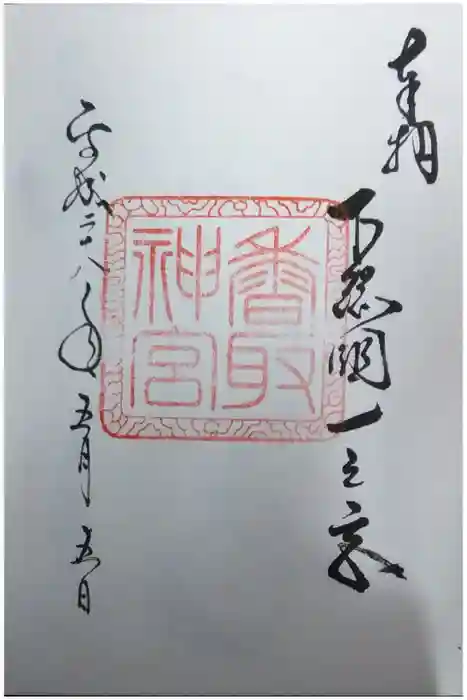 奉拝
下総國一之宮
香取
神宮
平成二十八年五月五日